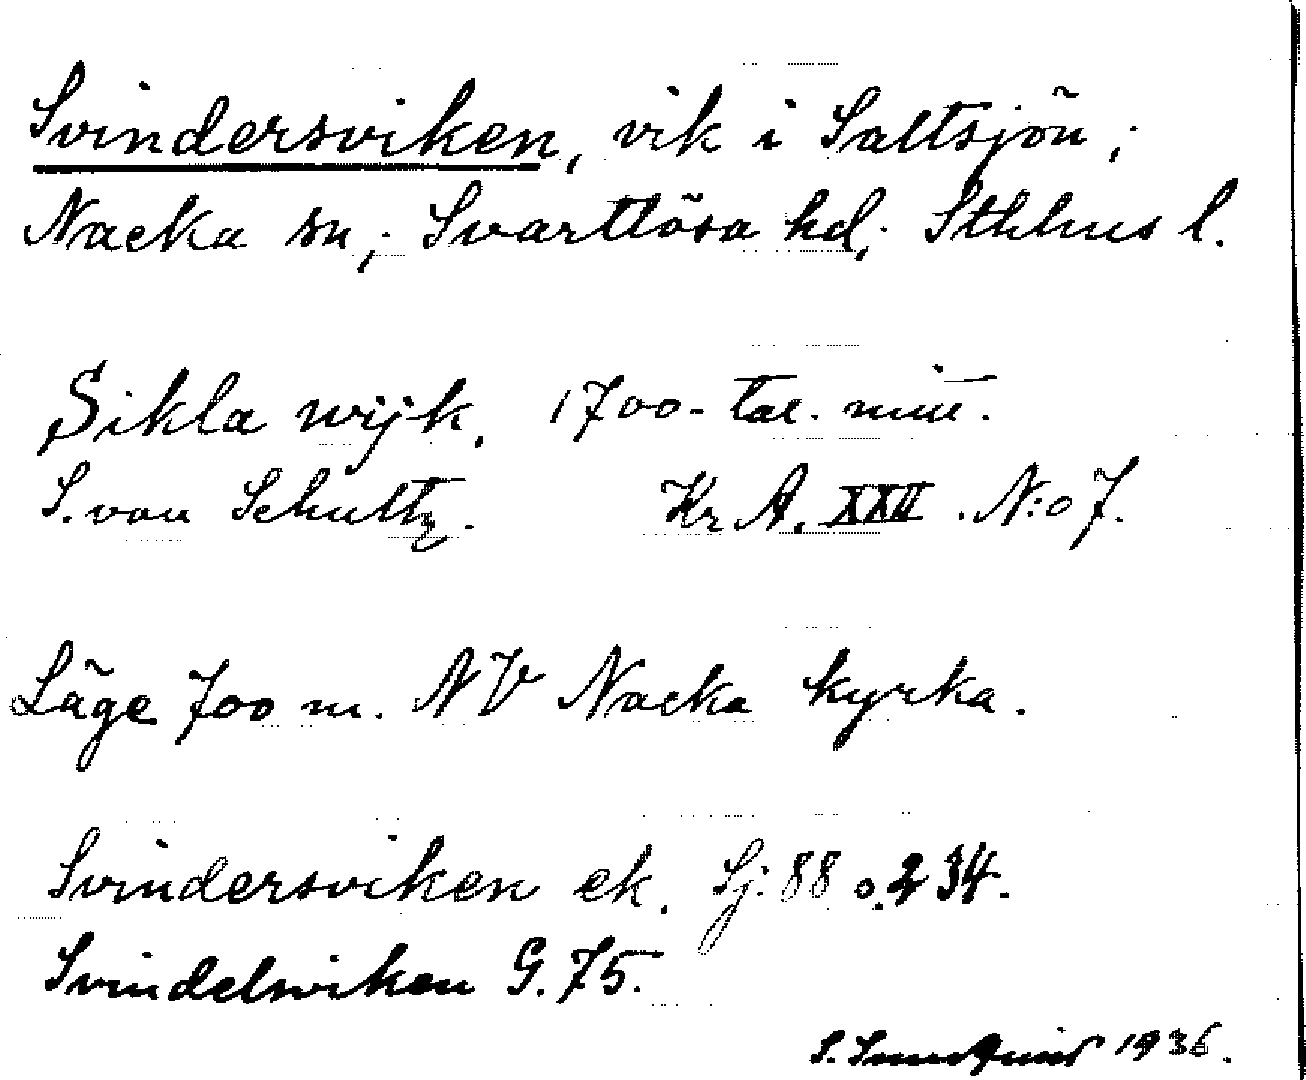 Svindersviken, vik i Saltsjön;
Nacka sn,; Svartlösa hd,. Sthlms l.
Sikla wijk. 1700-tal. mitt.
S. von Schultz. Kr A. XXII. N:o 7.
Läge 700 m. NV Nacka kyrka.
Svindersviken ek. Sj: 88 o. 234.
Svindelsviken G. 75.
S. 1936.